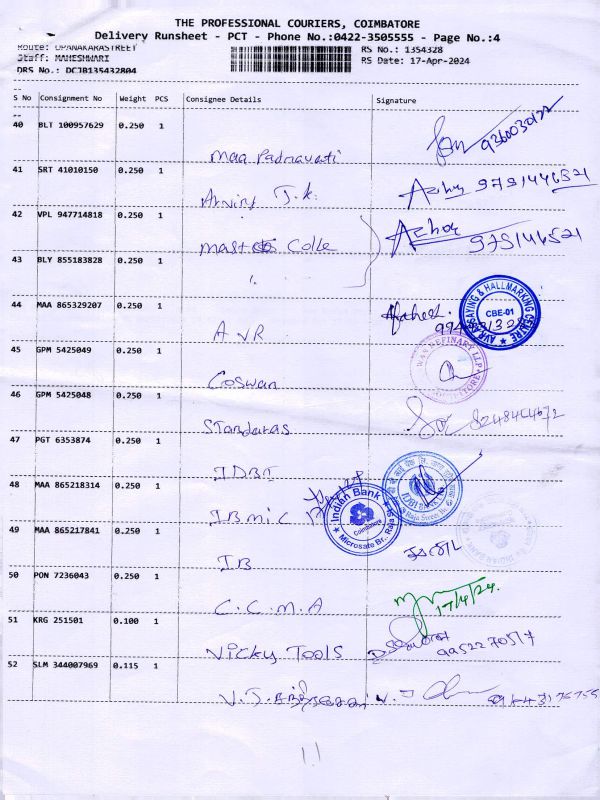 THE PROFESSIONAL COURIERS, COIMBATORE
Delivery Runsheet - PCT - Phone No.:0422-3505555 - Page No.:4
Route: OPANAKARASTREET
Staff: MAHESHWARI
DRS No.: DCJB135432804
RS No.: 1354328
RS Date: 17-Apr-2024
S No Consignment No Weight PCS Consignee Details Signature
40 BLT 100957629 0.250 1
Maa Padmavati
41 SRT 41010150 0.250 1
Azhar 9791446521
42 VPL 947714818 0.250 1
Azhar
43 BLY 855183828 0.250 1
44 MAA 865329207 0.250 1
AVR
AVR ASSAYING & HALLMARKING CENTRE
CBE-01
45 GPM 5425049 0.250 1
Coswan
46 GPM 5425048 0.250 1
47 PGT 6353874 0.250 1
IDBI
48 MAA 865218314 0.250 1
IBMIC
Indian Bank
Coimbatore
Microsate Br., Raja St
49 MAA 865217841 0.250 1
IB
50 PON 7236043 0.250 1
C.C.M.A
17/4/24.
51 KRG 251501 0.100 1
Nicky Tools
9952270517
52 SLM 344007969 0.115 1